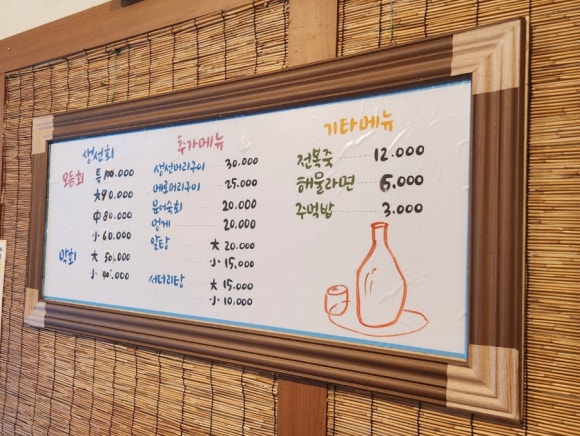 생선회
모듬회 特 100.000
大 90.000
中 80.000
小 60.000
막회 大 50.000
小 40.000
추가메뉴
생선머리구이 30.000
메로머리구이 25.000
문어숙회 20.000
멍게 20.000
알탕 大 20.000
小 15.000
서더리탕 大 15.000
小 10.000
기타메뉴
전복죽 12.000
해물라면 6.000
주먹밥 3.000